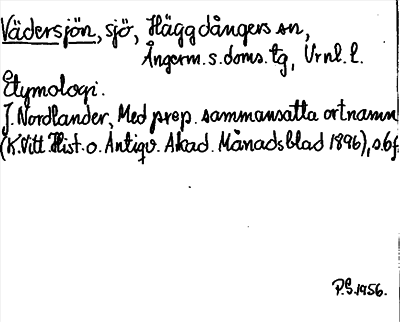 Vädersjön, sjö, Häggdångers sn,
Ångerm. s. doms. tg, Vrnl. l.
Etymologi.
J. Nordlander, Med prep. sammansatta ortnamn
(K. Vitt. Hist. o. Antiqv. Akad. Månadsblad 1896), s. 6 f.
P.S. 1956.